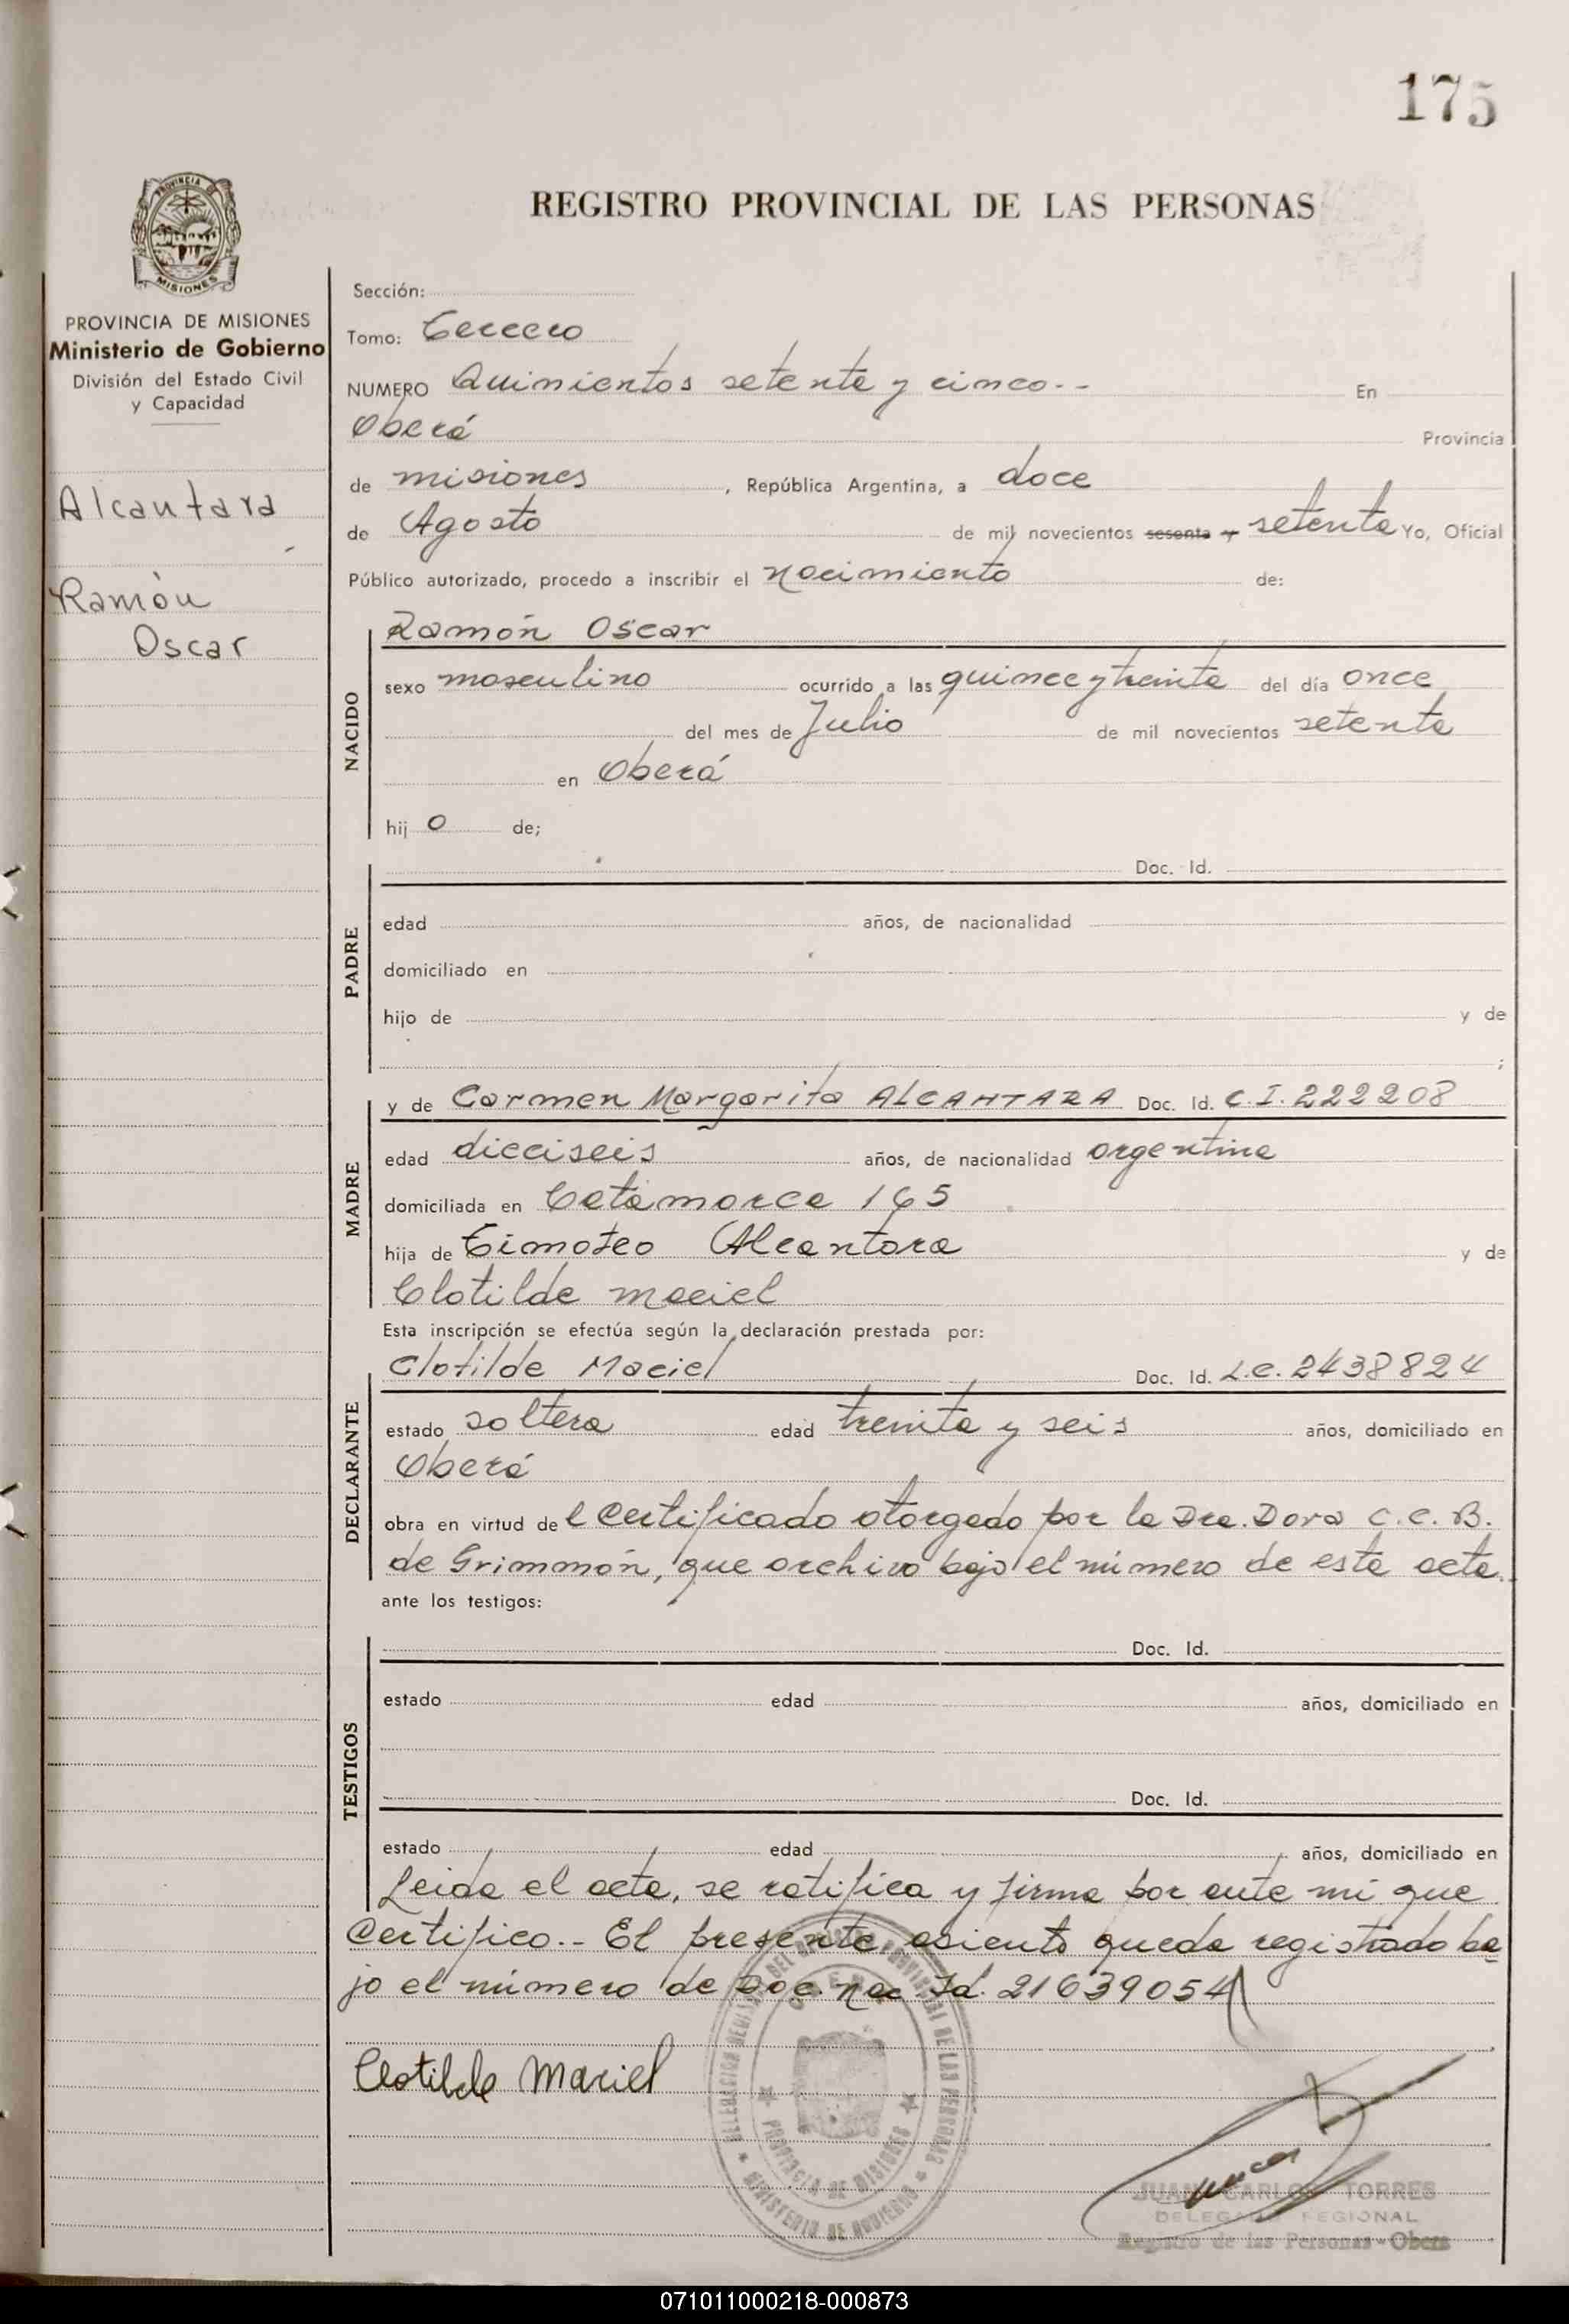 175
REGISTRO PROVINCIAL DE LAS PERSONAS
PROVINCIA DE
MISIONES
PROVINCIA DE MISIONES
Ministerio de Gobierno
División del Estado Civil
y Capacidad
Alcantara
Ramón
Oscar
Sección:
Tomo: Tercero
NUMERO Quinientos setenta y cinco.- En
Oberá Provincia
de misiones, República Argentina, a doce
de Agosto de mil novecientos sesenta y setenta Yo, Oficial
Público autorizado, procedo a inscribir el nacimiento de:
NACIDO
Ramón Oscar
sexo masculino ocurrido a las quince y treinta del día once
del mes de Julio de mil novecientos setenta
en Oberá
hijo de;
PADRE
Doc. Id.
edad años, de nacionalidad
domiciliado en
hijo de y de
;
MADRE
y de Carmen Margarita ALCANTARA Doc. Id. C.I. 222208
edad dieciseis años, de nacionalidad argentina
domiciliada en Catamarca 165
hija de Timoteo Alcantara y de
Clotilde maciel
Esta inscripción se efectúa según la declaración prestada por:
DECLARANTE
Clotilde Maciel Doc. Id. L.C. 2438824
estado soltera edad treinta y seis años, domiciliado en
Oberá
obra en virtud del Certificado otorgado por la Dra. Dora C. C. B.
de Grimmón, que archivo bajo el número de esta acta.
ante los testigos:
TESTIGOS
Doc. Id.
estado edad años, domiciliado en
Doc. Id.
estado edad años, domiciliado en
Leida el acta, se ratifica y firma por ante mi que
Certifico.- El presente asiento queda registrado ba
jo el número de Doc. Nac. Id. 21639054
Clotilde Maciel
PROVINCIA DE MISIONES
MINISTERIO DE GOBIERNO
JUAN CARLOS TORRES
DELEGADO REGIONAL
Registro de las Personas - Obera
071011000218-000873